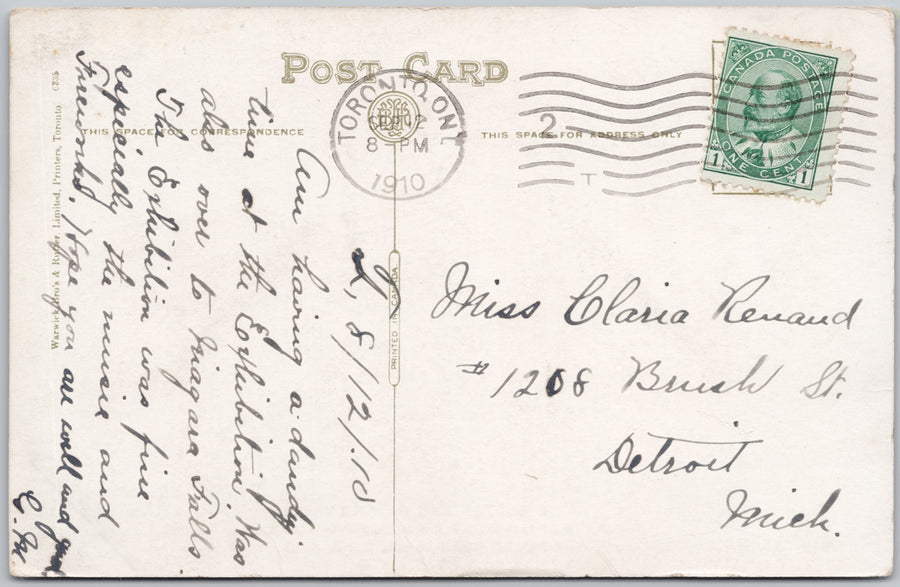 POST CARD
THIS SPACE FOR CORRESPONDENCE
THIS SPACE FOR ADDRESS ONLY
TORONTO, ONT.
SEP 12
8 PM
1910
2
T
CANADA POSTAGE
1 ONE CENT 1
Miss Claria Renaud
# 1208 Brush St.
Detroit
Mich.
PRINTED IN CANADA
8/12/10
Am having a dandy
time at the Exhibition. Was
also over to Niagara Falls
The Exhibition was fine
especially the music and
Fireworks. Hope you are well and good
C. M.
Warwick Bro's & Rutter, Limited, Printers, Toronto